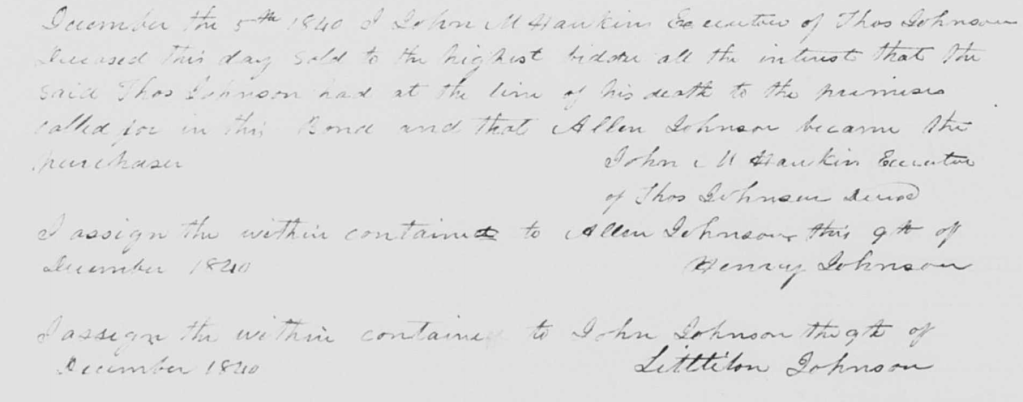 December the 5th 1840 I John M Hawkins Executor of Thos Johnson
Deceased this day sold to the highest bidder all the interest that the
said Thos Johnson had at the time of his death to the premises
called for in this Bond and that Allen Johnson became the
purchaser
John M Hawkin Executor
of Thos Johnson Decsd
I assign the within contained to Allen Johnson this 9th of
December 1840
Henry Johnson
I assign the within contained to John Johnson the 9th of
December 1840
Littliton Johnson